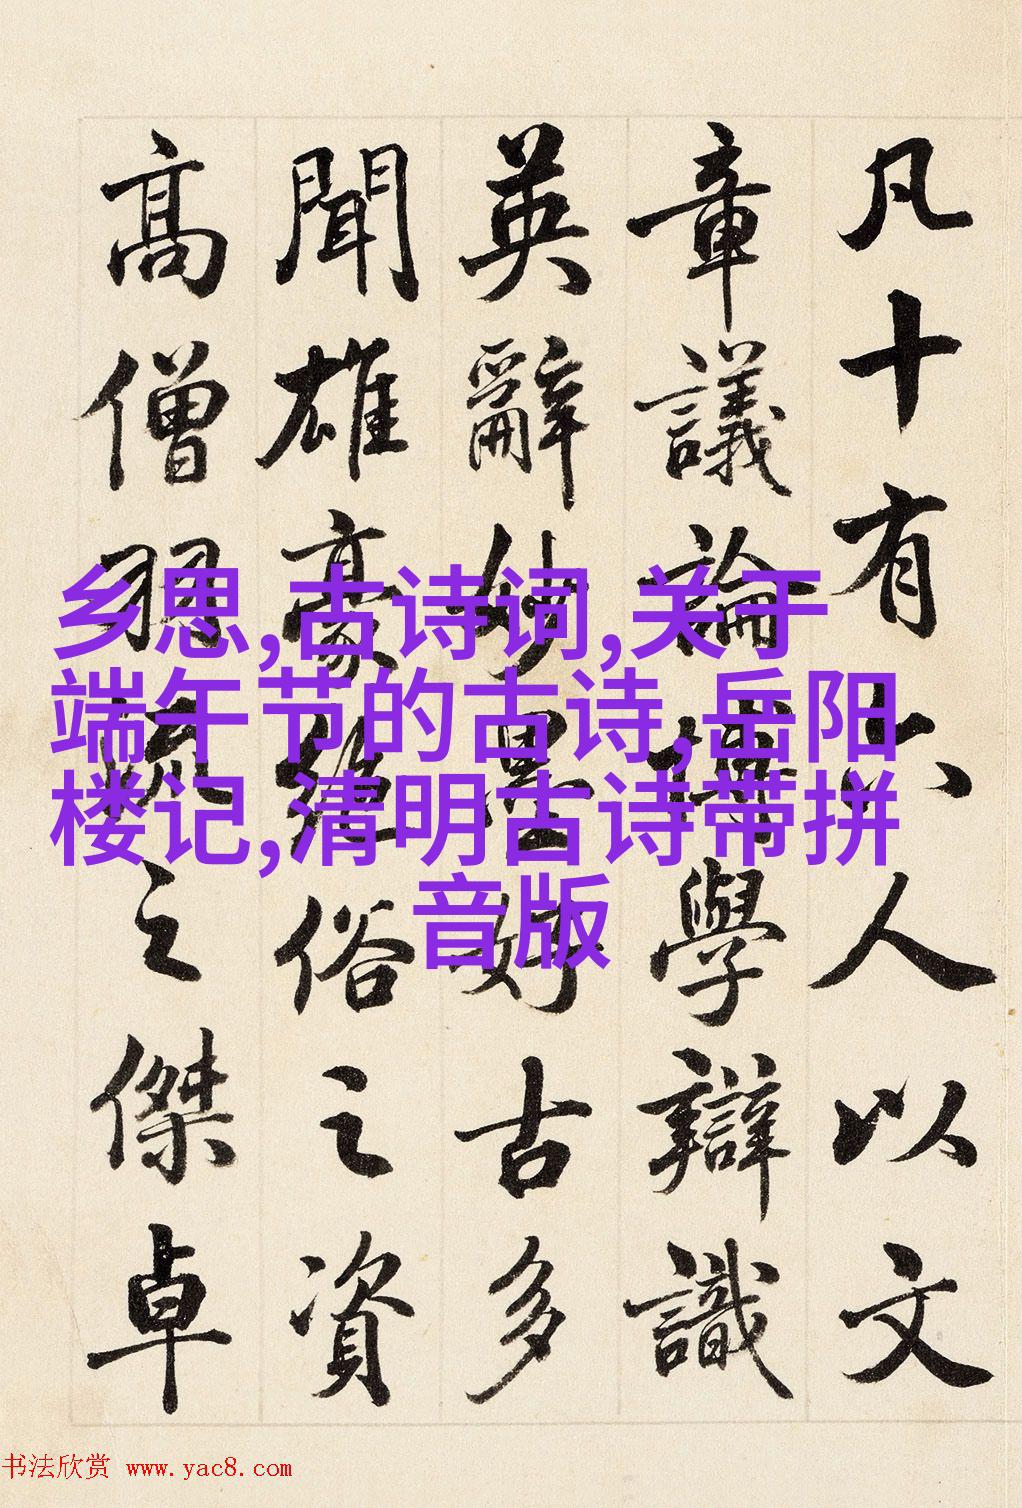 凡十有六人以文
章議論博學辯識
英辭妙墨好古多
聞雄豪絕俗之資
高僧羽流之傑卓
乡思,古诗词,关于
端午节的古诗,岳阳
楼记,清明古诗带拼
音版
书法欣赏 www.yac8.com